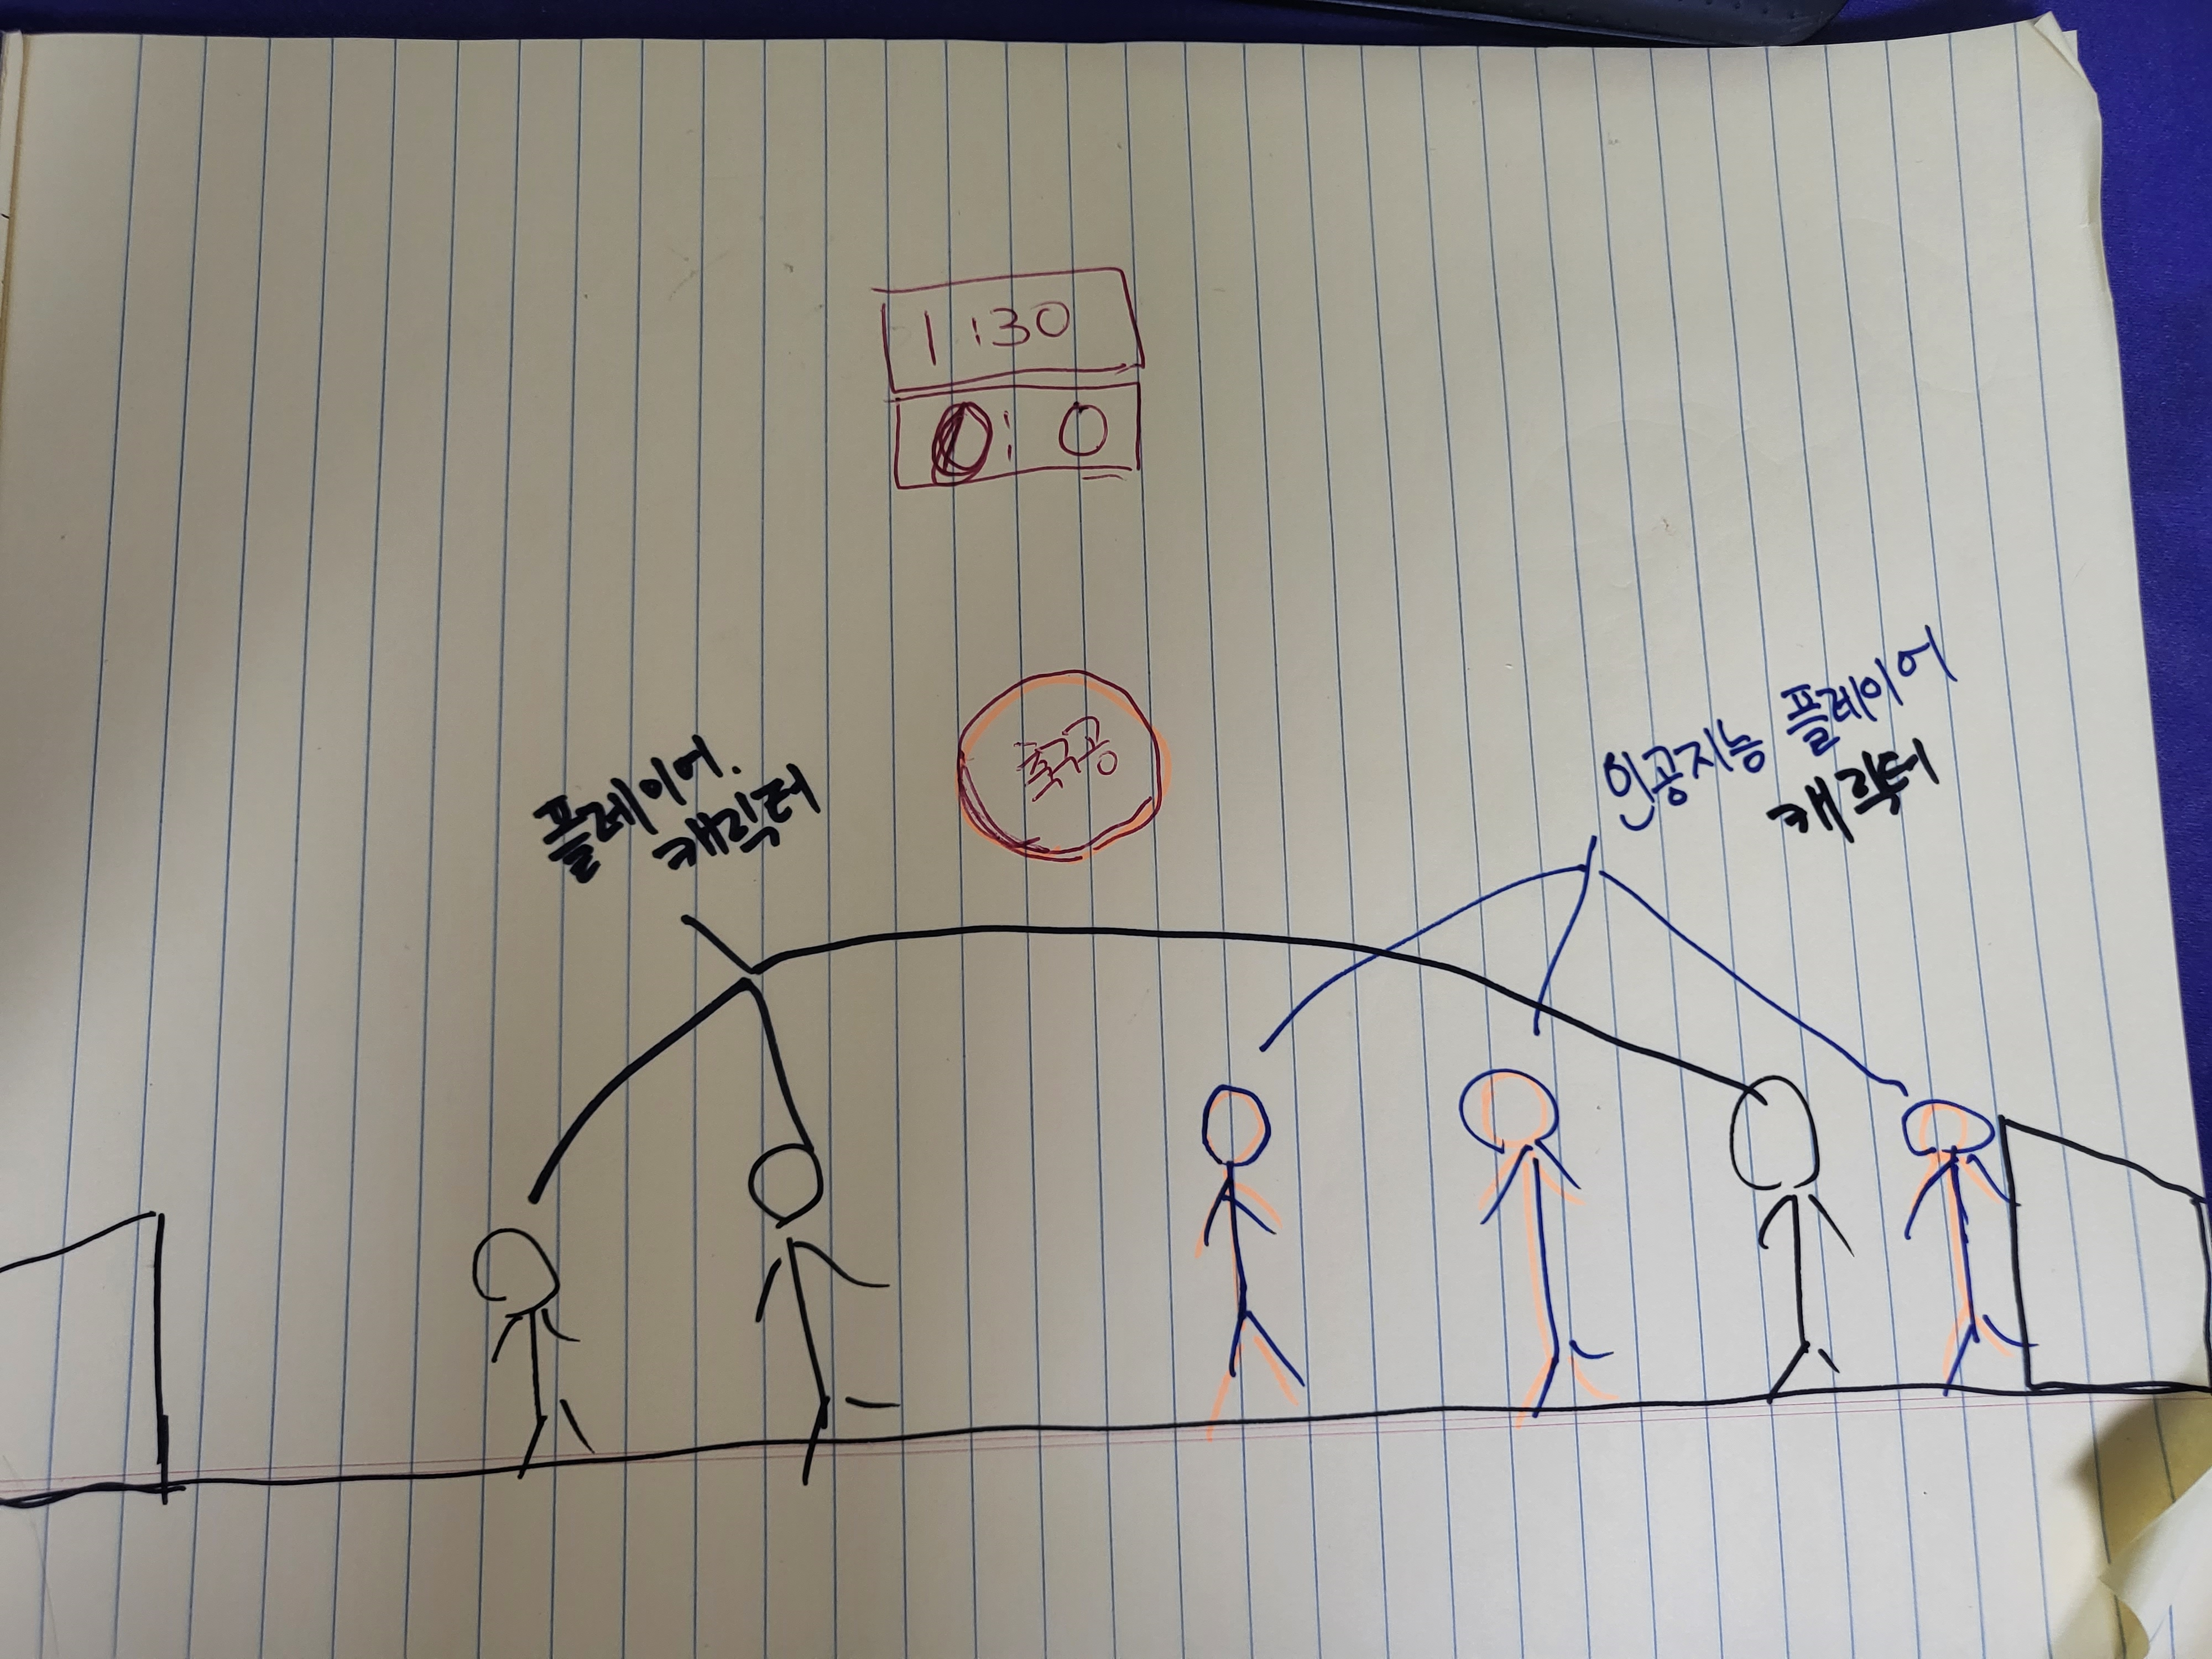 1:30
0:0
축구공
플레이어.
캐릭터
인공지능 플레이어
캐릭터